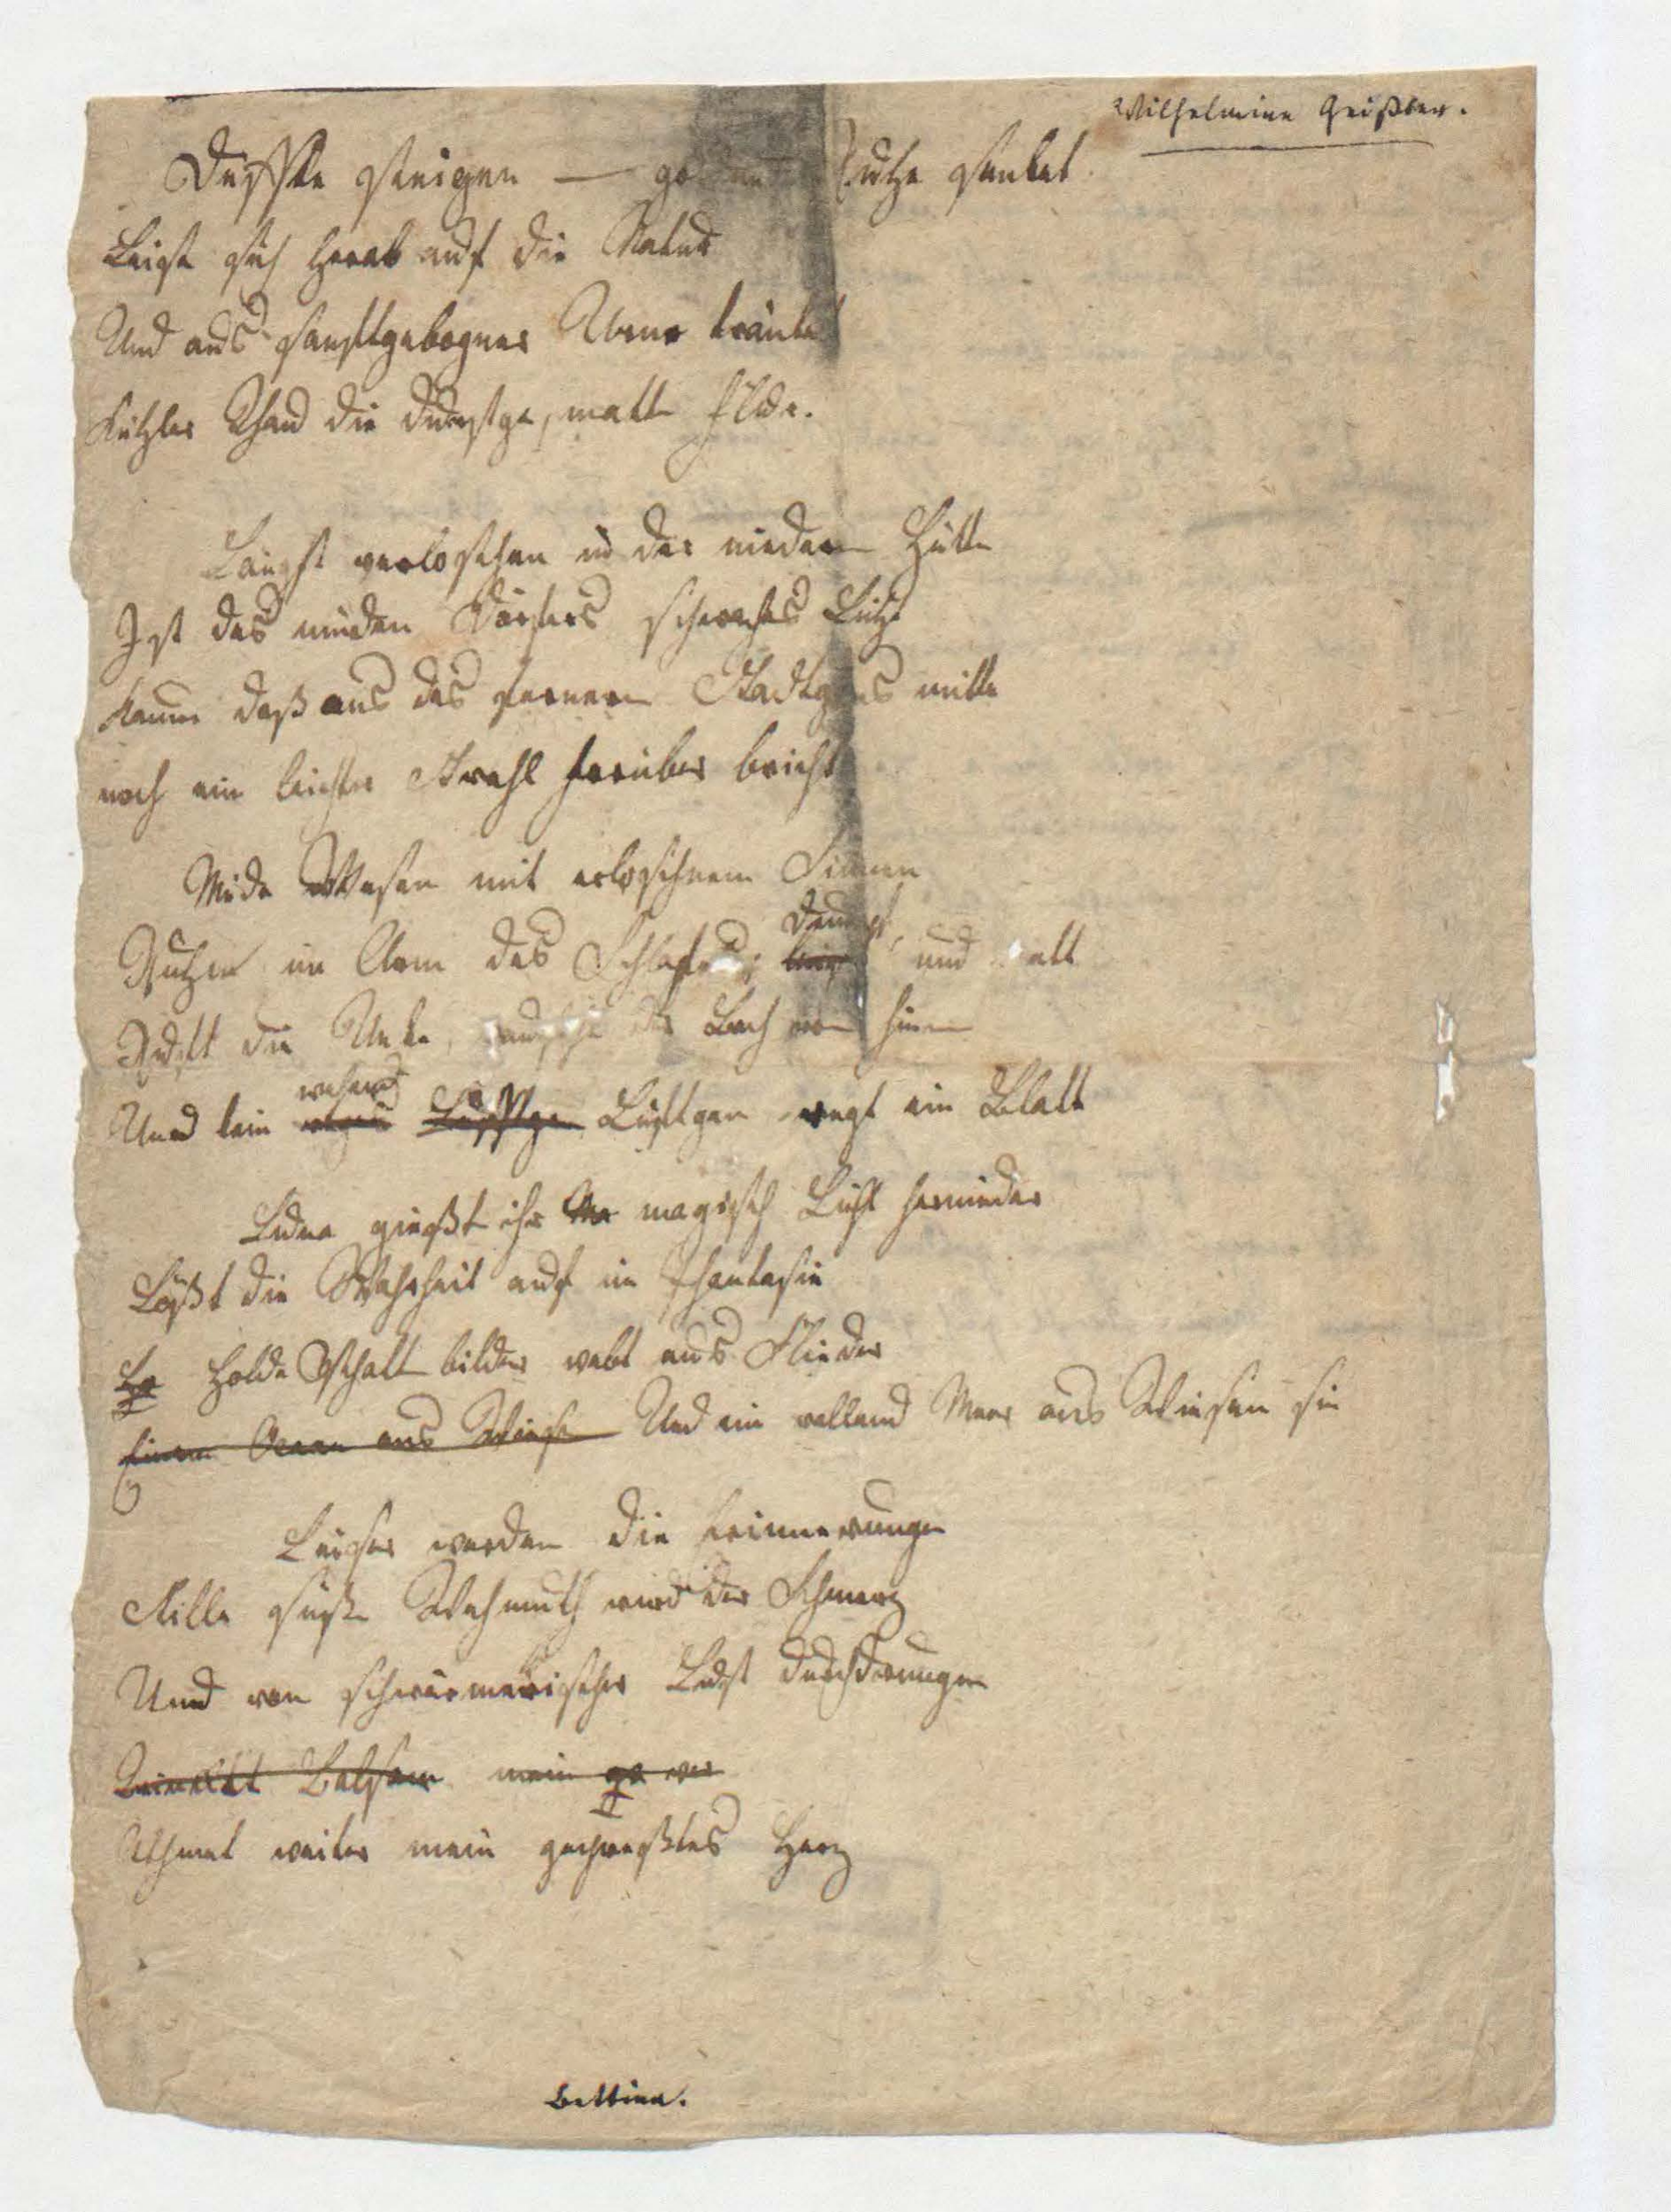 Wilhelmine Geißler.
Düffte steigen — goldne Ruhe senket
Leise sich herab auf die Natur
Und aus sanftgebogner Urne tränket
Kühler Thau die durstge, matte Flur.
Längst verloschen in der niedern Hütte
Ist des müden Dörfers schwaches Licht
Kaum daß aus des fernern Städtgens mitte
noch ein leichter Strahl herüber bricht
Müde Wesen mit erloschnem Sinnen
dumpf,
Ruhen im Arm des Schlafes; und matt
Ruft die Unke, rauscht der Bach von hinnen
wehend
Und kein Lüfftgen Lüftgen regt ein Blatt
Luna gießt ihr magisch Licht hernieder
Lößt die Wahrheit auf in Phantasie
Holde Schattbilder webt aus Flieder
Einen Ocean aus Wiesen Und ein wallend Meer aus Wiesen sie
Leiser werden die Erinnerungen
Stille süße Wehmuth wird der Schmerz
Und von schwärmerischer Lust durchdrungen
Balsam mein
Athmet weiter mein gepreßtes Herz
Bettina.